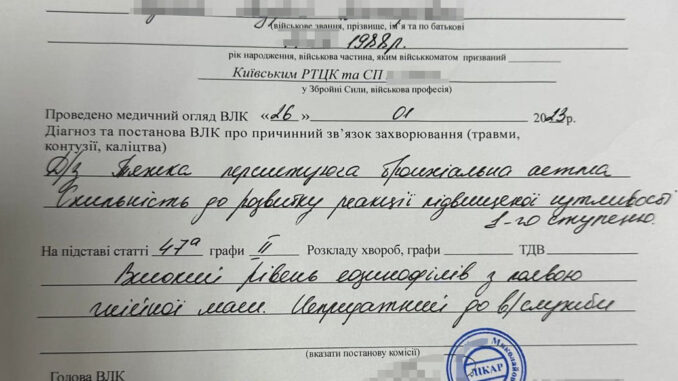 (військове звання, прізвище, ім'я та по батькові
1988р.
рік народження, військова частина, яким військкоматом призваний
Київським РТЦК та СП
у Збройні Сили, військова професія)
Проведено медичний огляд ВЛК «26» 01 2023р.
Діагноз та постанова ВЛК про причинний зв'язок захворювання (травми,
контузії, каліцтва)
Д/з Тяжка персистуюча бронхіальна астма
Схильність до розвитку реакції підвищеної чутливості
1-го ступеню.
На підставі статті 47а графи II Розкладу хвороб, графи ТДВ
Високий рівень з
Непридатний до в/служби
(вказати постанову комісії)
Голова ВЛК
ЛІКАР